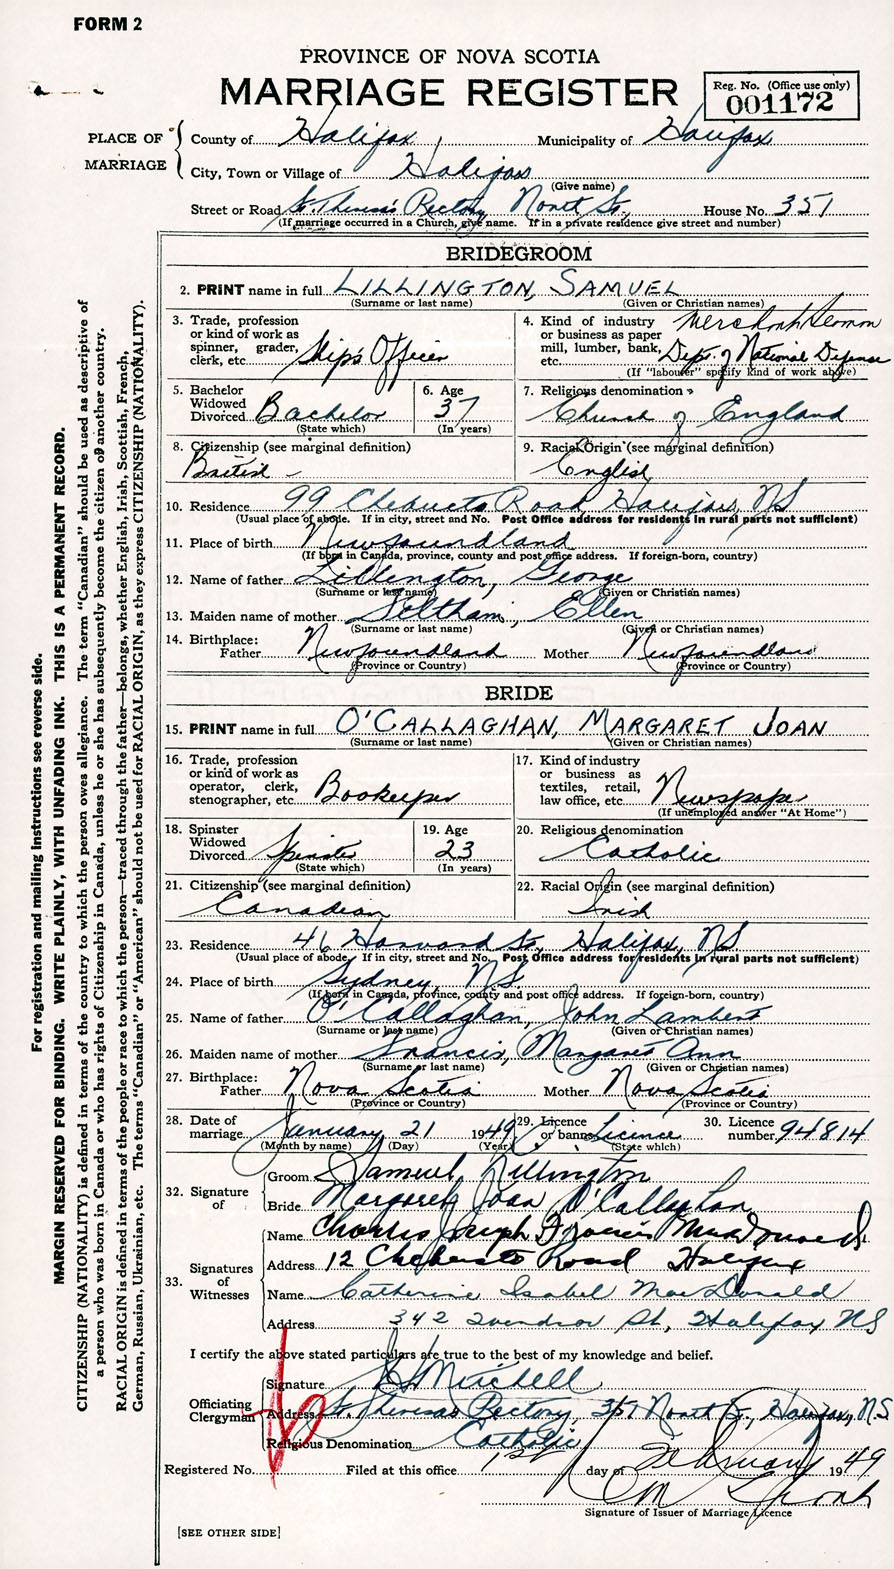 FORM 2
PROVINCE OF NOVA SCOTIA
MARRIAGE REGISTER
Reg. No. (Office use only)
001172
PLACE OF MARRIAGE
County of Halifax Municipality of Halifax
City, Town or Village of Halifax
(Give name)
Street or Road St. Theresa's Rectory North St., House No. 351
(If marriage occurred in a Church, give name. If in a private residence give street and number)
BRIDEGROOM
2. PRINT name in full LILLINGTON, SAMUEL
(Surname or last name) (Given or Christian names)
3. Trade, profession or kind of work as spinner, grader, clerk, etc. Ship's Officer
4. Kind of industry or business as paper mill, lumber, bank, etc. Merchant Seaman
Dept. of National Defense
(If "labourer" specify kind of work above)
5. Bachelor Widowed Divorced Bachelor
(State which)
6. Age 37
(In years)
7. Religious denomination
Church of England
8. Citizenship (see marginal definition)
British
9. Racial Origin (see marginal definition)
English
10. Residence 99 Chebucto Road Halifax, NS
(Usual place of abode. If in city, street and No. Post Office address for residents in rural parts not sufficient)
11. Place of birth Newfoundland
(If born in Canada, province, county and post office address. If foreign-born, country)
12. Name of father Lillington, George
(Surname or last name) (Given or Christian names)
13. Maiden name of mother Feltham, Ellen
(Surname or last name) (Given or Christian names)
14. Birthplace: Father Newfoundland Mother Newfoundland
(Province or Country) (Province or Country)
BRIDE
15. PRINT name in full O'CALLAGHAN, MARGARET JOAN
(Surname or last name) (Given or Christian names)
16. Trade, profession or kind of work as operator, clerk, stenographer, etc. Bookeeper
17. Kind of industry or business as textiles, retail, law office, etc. Newspaper
(If unemployed answer "At Home")
18. Spinster Widowed Divorced Spinster
(State which)
19. Age 23
(In years)
20. Religious denomination
Catholic
21. Citizenship (see marginal definition)
Canadian
22. Racial Origin (see marginal definition)
Irish
23. Residence 46 Harvard St., Halifax, NS
(Usual place of abode. If in city, street and No. Post Office address for residents in rural parts not sufficient)
24. Place of birth Sydney, NS
(If born in Canada, province, county and post office address. If foreign-born, country)
25. Name of father O'Callaghan, John Lambert
(Surname or last name) (Given or Christian names)
26. Maiden name of mother Francis, Margaret Ann
(Surname or last name) (Given or Christian names)
27. Birthplace: Father Nova Scotia Mother Nova Scotia
(Province or Country) (Province or Country)
28. Date of marriage January 21 1949
(Month by name) (Day) (Year)
29. Licence or banns Licence
(State which)
30. Licence number 94814
32. Signature of
Groom Samuel Lillington
Bride Margaret Joan O'Callaghan
33. Signatures of Witnesses
Name Charles Joseph Francis MacDonald
Address 12 Chebucto Road Halifax
Name Catherine Isabel MacDonald
Address 342 Windsor St, Halifax NS
I certify the above stated particulars are true to the best of my knowledge and belief.
Officiating Clergyman
Signature Mitchell
Address St. Theresa's Rectory, 351 North St., Halifax, N.S.
Religious Denomination Catholic
Registered No. Filed at this office 1st day of February 1949
Signature of Issuer of Marriage Licence
[SEE OTHER SIDE]
For registration and mailing instructions see reverse side.
MARGIN RESERVED FOR BINDING. WRITE PLAINLY, WITH UNFADING INK. THIS IS A PERMANENT RECORD.
CITIZENSHIP (NATIONALITY) is defined in terms of the country to which the person owes allegiance. The term "Canadian" should be used as descriptive of
a person who was born in Canada or who has rights of Citizenship in Canada, unless he or she has subsequently become the citizen of another country.
RACIAL ORIGIN is defined in terms of the people or race to which the person—traced through the father—belongs, whether English, Irish, Scottish, French,
German, Russian, Ukrainian, etc. The terms "Canadian" or "American" should not be used for RACIAL ORIGIN, as they express CITIZENSHIP (NATIONALITY).